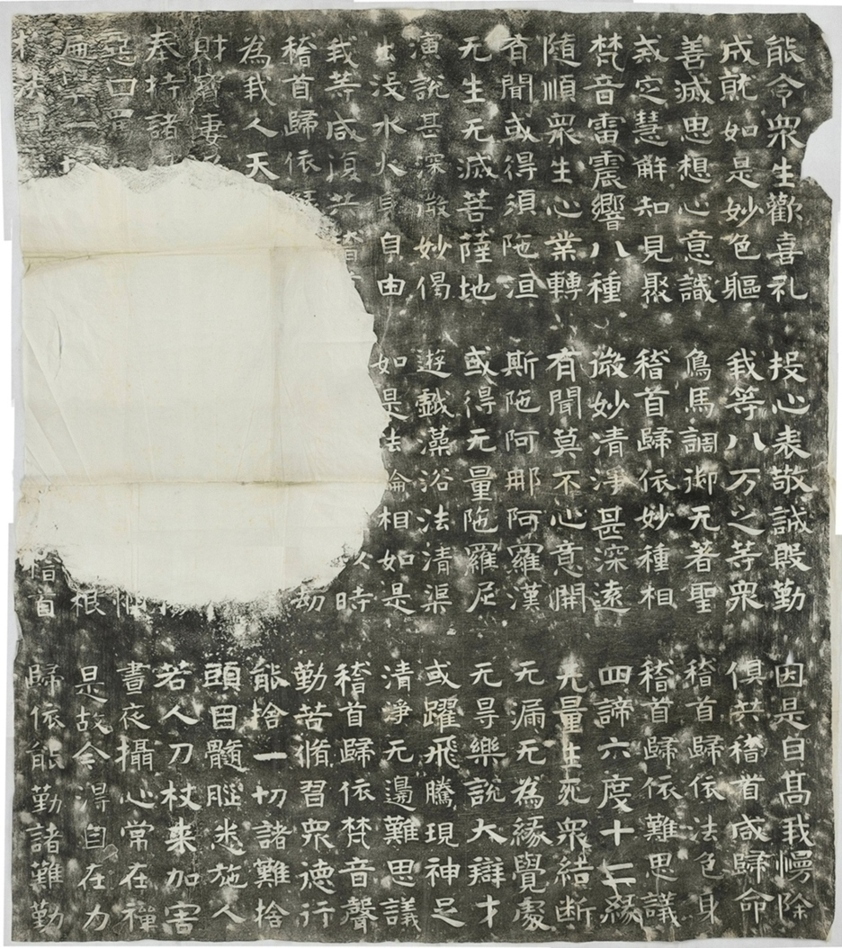 能令衆生歡喜礼 投心表敬誠殷勤 因是自高我慢除
成就如是妙色軀 我等八万之等衆 俱共稽首咸歸命
善滅思想心意識 鳥馬調御无著聖 稽首歸依法色身
戒定慧解知見聚 稽首歸依妙種相 稽首歸依難思議
梵音雷震響八種 微妙清淨甚深遠 四諦六度十二緣
隨順衆生心業轉 有聞莫不心意開 无量生死衆結断
有聞或得須陁洹 斯陁阿那阿羅漢 无漏无為緣覺處
无生无滅菩薩地 或得无量陁羅尼 无㝵樂說大辯才
演說甚深微妙偈 遊戲藻浴法清渠 或躍飛騰現神足
出没水火身自由 如是法輪相如是 清淨无邊難思議
我等咸復共稽 以時 稽首歸依梵音聲
稽首歸依 劫 勤苦脩習衆德行
為我人天 能捨一切諸難捨
財寶妻 頭目髓腦悉施人
奉持諸 若人刀杖来加害
惡口罵 晝夜攝心常在禪
一 根 是故今得自在力
法 稽首 歸依能勤諸難勤